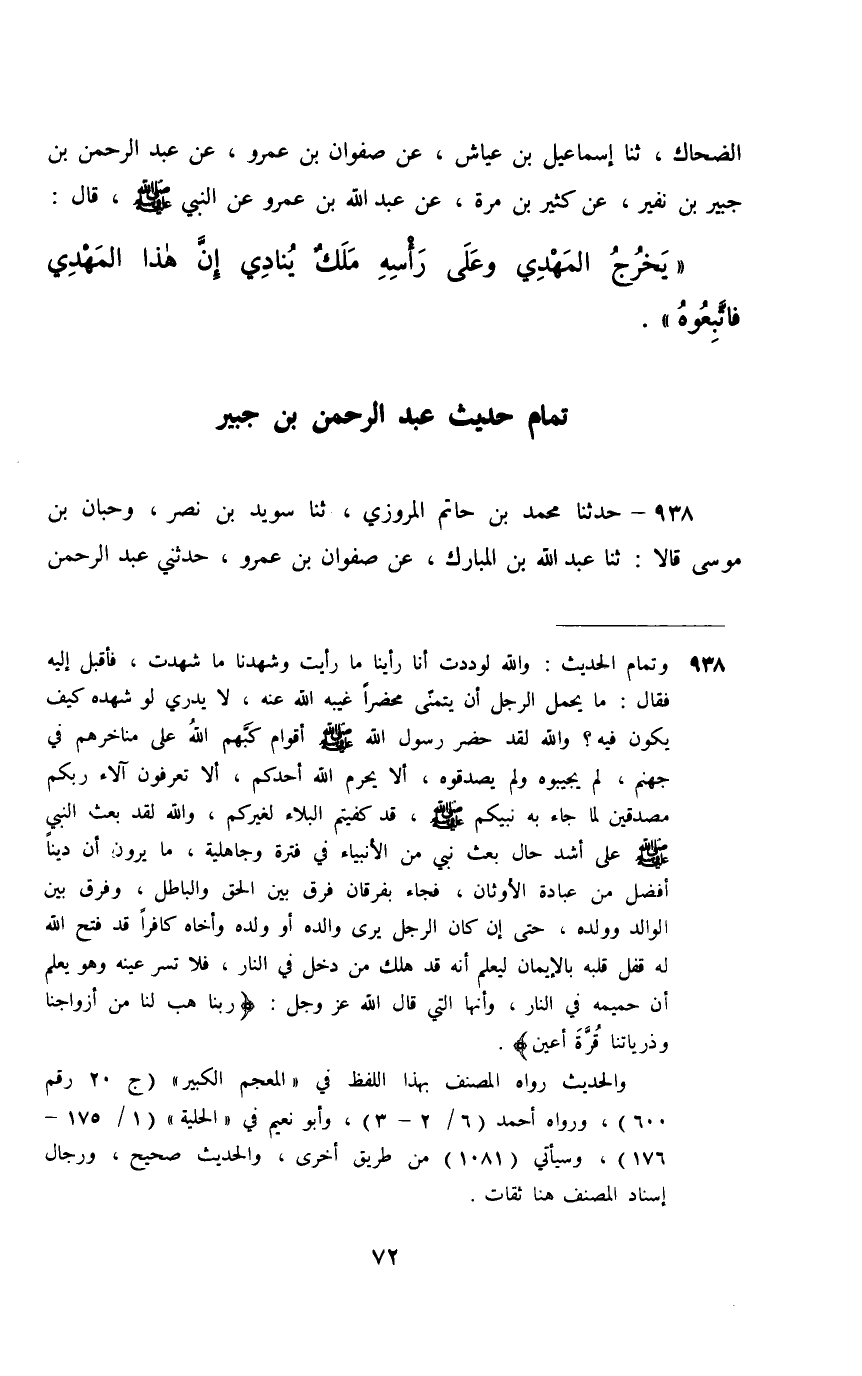 الضحاك ، ثنا إسماعيل بن عياش ، عن صفوان بن عمرو ، عن عبد الرحمن بن
جبير بن نفير ، عن كثير بن مرة ، عن عبد الله بن عمرو عن النبي ﷺ ، قال :
« يَخرُجُ المَهْدِي وعَلَى رَأْسِهِ مَلَكٌ يُنادِي إِنَّ هٰذا المَهْدِي
فاتَّبِعُوهُ » .
تمام حديث عبد الرحمن بن جبير
٩٣٨ – حدثنا محمد بن حاتم المروزي ، ثنا سويد بن نصر ، وحبان بن
موسى قالا : ثنا عبد الله بن المبارك ، عن صفوان بن عمرو ، حدثني عبد الرحمن
٩٣٨ وتمام الحديث : والله لوددت أنا رأينا ما رأيت وشهدنا ما شهدت ، فأقبل إليه
فقال : ما يحمل الرجل أن يتمنّى محضراً غيبه الله عنه ، لا يدري لو شهده كيف
يكون فيه ؟ والله لقد حضر رسول الله ﷺ أقوام كَبَّهم اللهُ على مناخرهم في
جهنم ، لم يجيبوه ولم يصدقوه ، ألا يحرم الله أحدكم ، ألا تعرفون آلاء ربكم
مصدقين لما جاء به نبيكم ﷺ ، قد كفيتم البلاء لغيركم ، والله لقد بعث النبي
ﷺ على أشد حال بعث نبي من الأنبياء في فترة وجاهلية ، ما يرون أن ديناً
أفضل من عبادة الأوثان ، فجاء بفرقان فرق بين الحق والباطل ، وفرق بين
الوالد وولده ، حتى إن كان الرجل يرى والده أو ولده وأخاه كافراً قد فتح الله
له قفل قلبه بالإيمان ليعلم أنه قد هلك من دخل في النار ، فلا تسر عينه وهو يعلم
أن حميمه في النار ، وأنها التي قال الله عز وجل : ﴿ ربنا هب لنا من أزواجنا
وذرياتنا قُرَّةَ أعين ﴾ .
والحديث رواه المصنف بهذا اللفظ في « المعجم الكبير » (ج ٢٠ رقم
٦٠٠) ، ورواه أحمد (٦/ ٢ – ٣) ، وأبو نعيم في « الحلية » (١/ ١٧٥ –
١٧٦) ، وسيأتي (١٠٨١) من طريق أخرى ، والحديث صحيح ، ورجال
إسناد المصنف هنا ثقات .
٧٢